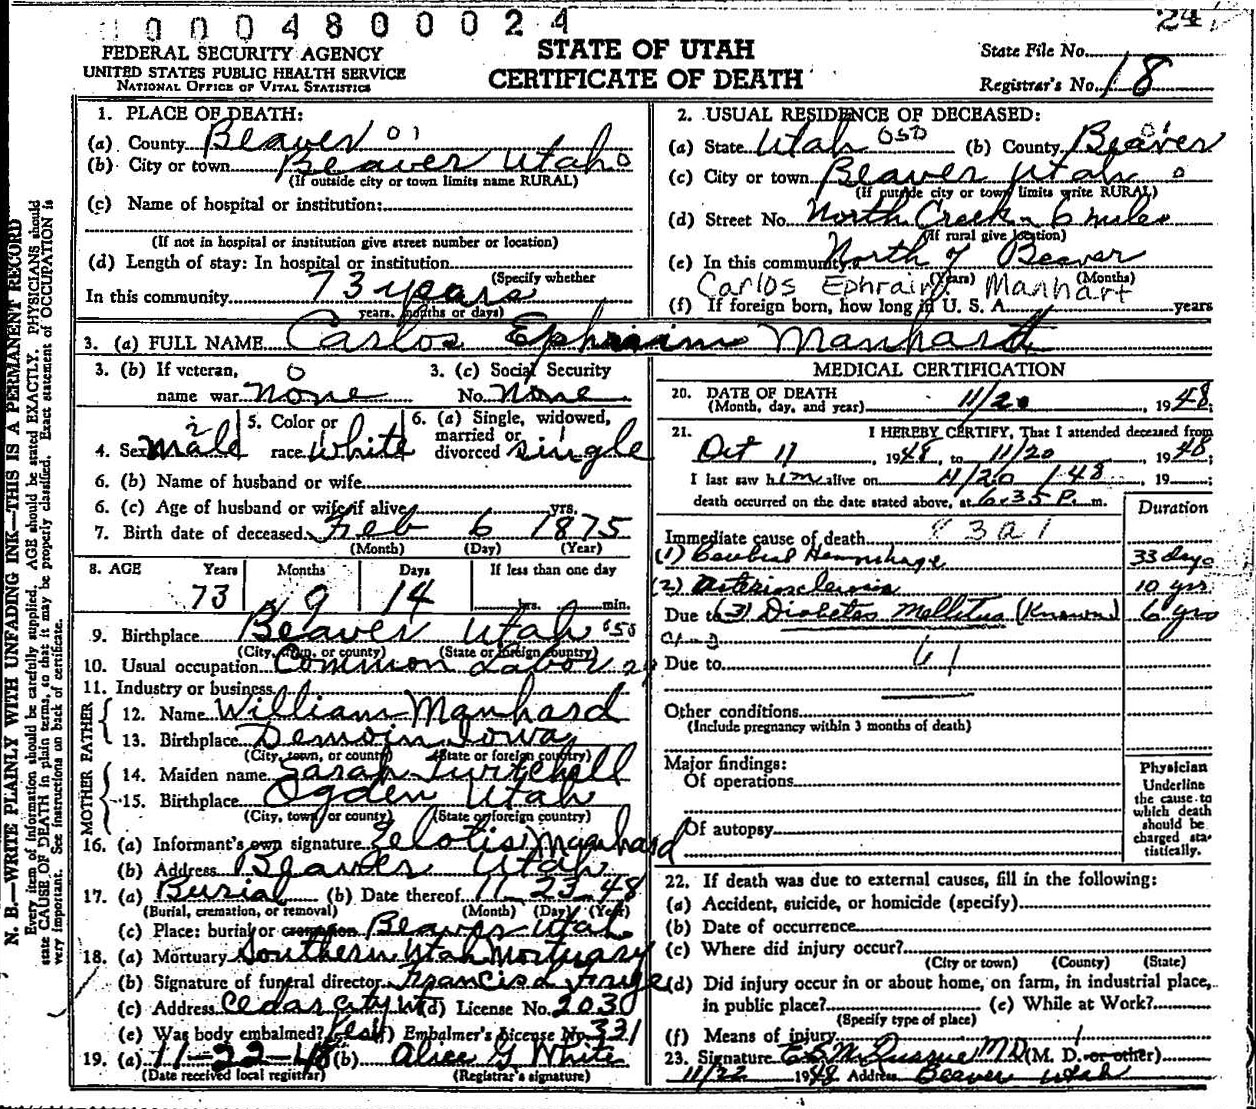 1 0 0 0 4 8 0 0 0 2 4
24
FEDERAL SECURITY AGENCY
UNITED STATES PUBLIC HEALTH SERVICE
NATIONAL OFFICE OF VITAL STATISTICS
STATE OF UTAH
CERTIFICATE OF DEATH
State File No.
Registrar's No. 18
N. B.—WRITE PLAINLY WITH UNFADING INK—THIS IS A PERMANENT RECORD
Every item of information should be carefully supplied. AGE should be stated EXACTLY. PHYSICIANS should
state CAUSE OF DEATH in plain terms, so that it may be properly classified. Exact statement of OCCUPATION is
very important. See instructions on back of certificate.
1. PLACE OF DEATH:
(a) County Beaver 01
(b) City or town Beaver Utah 0
(If outside city or town limits name RURAL)
(c) Name of hospital or institution:
(If not in hospital or institution give street number or location)
(d) Length of stay: In hospital or institution
(Specify whether
In this community 73 years
years, months or days)
2. USUAL RESIDENCE OF DECEASED:
(a) State Utah 050 (b) County Beaver 01
(c) City or town Beaver Utah 0
(If outside city or town limits write RURAL)
(d) Street No. North Creek - 6 miles
(If rural give location)
(e) In this community North of Beaver
(Years) (Months)
Carlos Ephraim Manhart
(f) If foreign born, how long in U. S. A. years
3. (a) FULL NAME Carlos Ephraim Manhardt
3. (b) If veteran, 0
name war none
3. (c) Social Security
No. None
4. Sex male 2
5. Color or
race White
6. (a) Single, widowed,
married or 1
divorced single
6. (b) Name of husband or wife
6. (c) Age of husband or wife if alive yrs.
7. Birth date of deceased Feb 6 1875
(Month) (Day) (Year)
8. AGE Years Months Days If less than one day
73 9 14 hrs. min.
9. Birthplace Beaver Utah 050
(City, town, or county) (State or foreign country)
10. Usual occupation Common Labor
11. Industry or business
FATHER
12. Name William Manhard
13. Birthplace Demoin Iowa
(City, town, or county) (State or foreign country)
MOTHER
14. Maiden name Sarah Twitchell
15. Birthplace Ogden Utah
(City, town or county) (State or foreign country)
16. (a) Informant's own signature Zelotis Manhard
(b) Address Beaver Utah
17. (a) Burial (b) Date thereof 11-23-48
(Burial, cremation, or removal) (Month) (Day) (Year)
(c) Place: burial or cremation Beaver Utah
18. (a) Mortuary Southern Utah Mortuary
(b) Signature of funeral director Francis
(c) Address Cedar City Ut (d) License No. 2030
(e) Was body embalmed? Yes (f) Embalmer's License No. 331
19. (a) 11-22-48 (b) Alice G White
(Date received local registrar) (Registrar's signature)
MEDICAL CERTIFICATION
20. DATE OF DEATH
(Month, day, and year) 11/20, 1948;
21. I HEREBY CERTIFY, That I attended deceased from
Oct 11, 1948, to 11/20, 1948;
I last saw him alive on 11/20 48, 19;
death occurred on the date stated above, at 6:35 P. m.
Duration
Immediate cause of death
(1) Cerebral Hemorrhage 33 days
(2) Arteriosclerosis 10 yrs
Due to (3) Diabetes Mellitus (Known) 6 yrs
Due to 61
Other conditions
(Include pregnancy within 3 months of death)
Major findings:
Of operations
Of autopsy
Physician
Underline
the cause to
which death
should be
charged sta-
tistically.
22. If death was due to external causes, fill in the following:
(a) Accident, suicide, or homicide (specify)
(b) Date of occurrence
(c) Where did injury occur?
(City or town) (County) (State)
(d) Did injury occur in or about home, on farm, in industrial place,
in public place? (e) While at Work?
(Specify type of place)
(f) Means of injury
23. Signature M.D. (M. D. or other)
11/22 1948 Address Beaver Utah